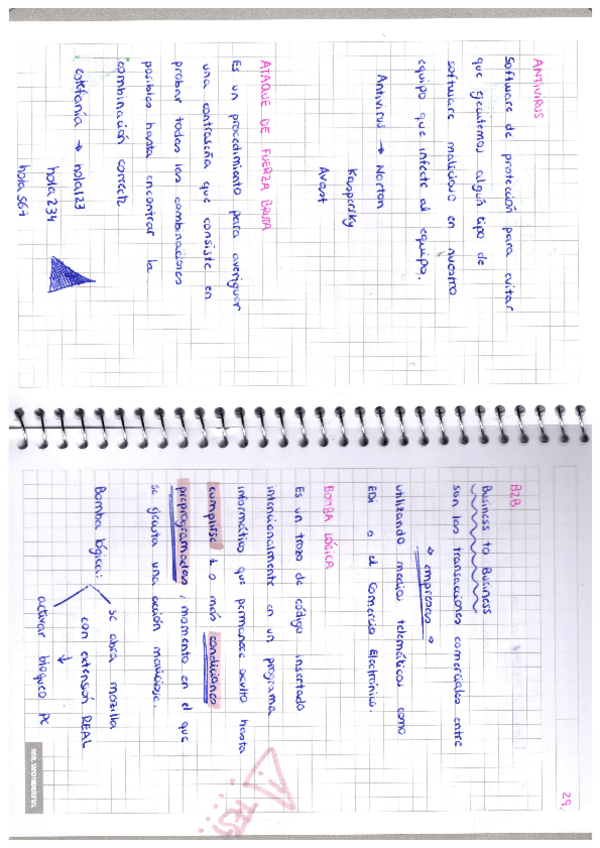 ANTIVIRUS
Software de protección para evitar
que ejecutemos algún tipo de
software malicioso en nuestro
equipo que infecte al equipo.
Antivirus → Norton
Kaspersky
Avast
ATAQUE DE FUERZA BRUTA
Es un procedimiento para averiguar
una contraseña que consiste en
probar todas las combinaciones
posibles hasta encontrar la
combinación correcta
estefanía → hola123
hola234
hola567
29.
B2B
Business to Business
son las transacciones comerciales entre
→ empresas →
utilizando medios telemáticos como
EDI o el Comercio Electrónico.
BOMBA LÓGICA
Es un trozo de código insertado
intencionalmente en un programa
informático que permanece oculto hasta
cumplirse 1 o más condiciones
preprogramadas, momento en el que
se ejecuta una acción maliciosa.
Bomba lógica:
se abra mozilla
con extensión REAL
↓
activar bloqueo PC
TEST
MR. WONDERFUL